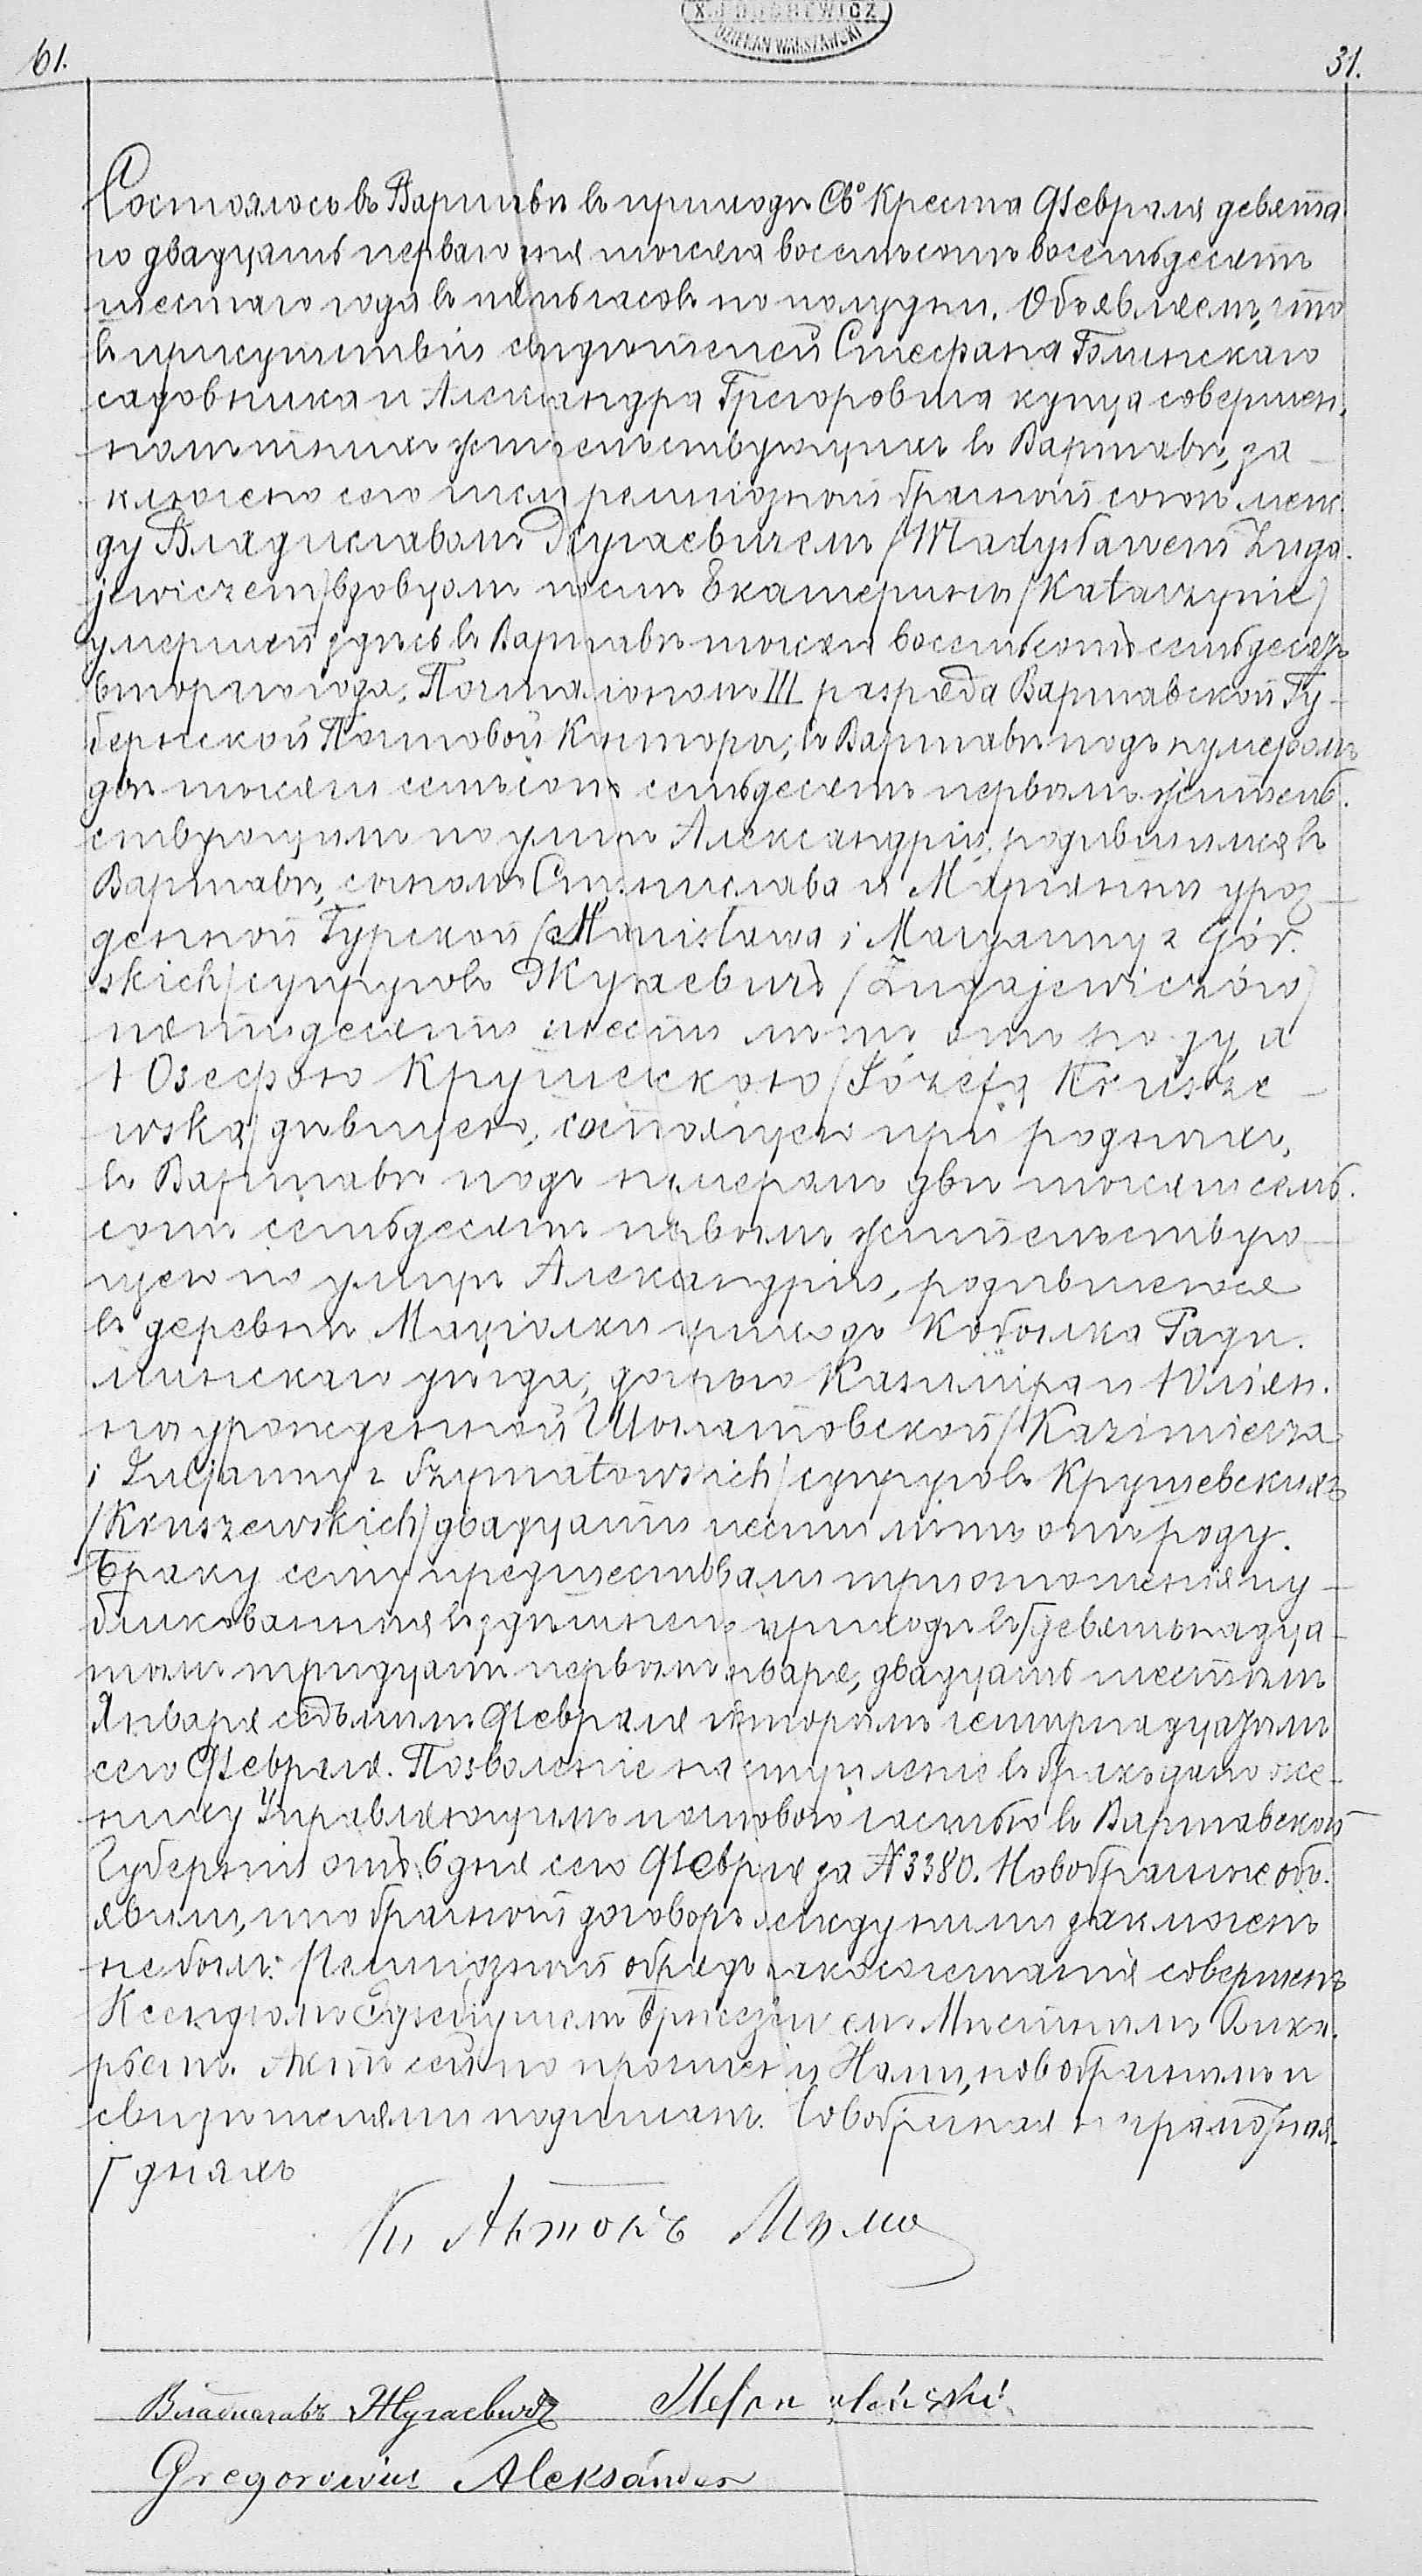 DZIEKAN WARSZAWSKI
61. 31.
Состоялось въ Варшавѣ въ приходѣ Св. Креста Февраля девята
го двадцать перваго дня тысяча восемьсотъ восемьдесятъ
шестаго года въ пять часовъ по полудни. Объявляемъ, что
въ присутствіи свидѣтелей Стефана Глинскаго
садовника и Александра Грегоровіуса купца совершен.
нолѣтнихъ жительствующихъ въ Варшавѣ, за
ключенъ сего числа религіозный брачный союзъ меж
ду Владиславомъ Жугаевичемъ /Władysławem Żuga.
jewiczem/ вдовцомъ послѣ Екатерины /Katarzynie/
умершей здѣсь въ Варшавѣ тысяча восемьсотъ семьдесятъ
втораго года, Почталіономъ III разряда Варшавской Гу-
бернской Почтовой Конторы, въ Варшавѣ подъ нумеромъ
двѣ тысячи семьсотъ семьдесятъ первымъ житель.
ствующимъ по улицѣ Александрія, родившимся въ
Варшавѣ, сыномъ Станислава и Маріанны урож
денной Гурской /Stanisława i Maryanny z Gór.
skich/ супруговъ Жугаевичъ /Żugajewiczów/
пятьдесятъ шесть лѣтъ отъ роду, а
Юзефою Крушевскою /Józefą Krusze-
wską/ дѣвицею, состоящею при родныхъ,
въ Варшавѣ подъ нумеромъ двѣ тысячи семь.
сотъ семьдесятъ первымъ жительствую
щею по улицѣ Александрія, родившеюся
въ деревнѣ Маціолки прихода Кобылка Рады.
минскаго уѣзда, дочерью Казиміра и Юліан.
ны урожденной Шыматовской /Kazimierza
i Juljanny z Szymatowskich/ супруговъ Крушевскихъ
/Kruszewskich/ двадцать шесть лѣтъ отъ роду.
Браку сему предшествовали три оглашенія пу-
бликованныя въ здѣшнемъ приходѣ въ девятнадца-
томъ тридцать первомъ января, двадцать шестомъ
Января седьмомъ Февраля и второмъ четырнадцатомъ
сего Февраля. Позволеніе на вступленіе въ бракъ дано же-
ниху Управляющимъ почтовою частью въ Варшавской
Губерніи отъ 6 дня сего Февраля за N 3380. Новобрачные объ.
явили, что брачный договоръ между ними заключенъ
не былъ. Религіозный обрядъ бракосочетанія совершенъ
Ксендзомъ Мѣстнымъ Вика.
ріемъ. Актъ сей по прочтеніи Нами, новобрачнымъ и
свидѣтелями подписанъ. Новобрачная неграмотная.
Г дняхъ
Кс. Антонъ
Владиславъ Жугаевичъ Stefan
Gregorovius Aleksander